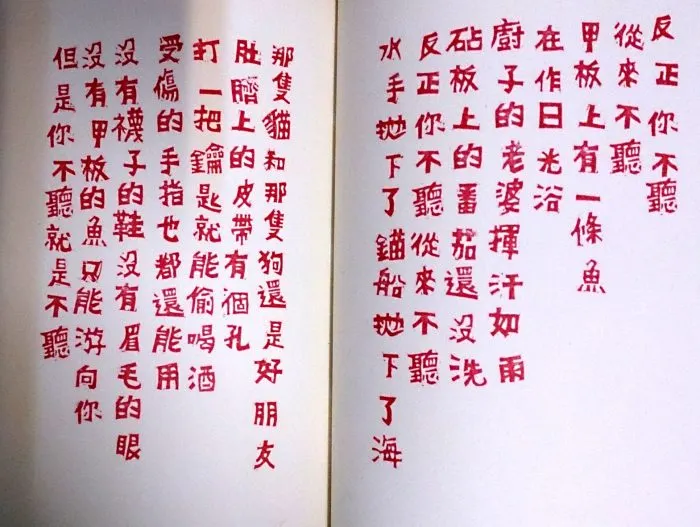 反正你不聽
從來不聽
甲板上有一條魚
在作日光浴
廚子的老婆揮汗如雨
砧板上的番茄還沒洗
反正你不聽從來不聽
水手拋下了錨船拋下了海
那隻貓和那隻狗還是好朋友
肚臍上的皮帶有個孔
打一把鑰匙就能偷喝酒
受傷的手指也都還能用
沒有襪子的鞋沒有眉毛的眼
沒有甲板的魚只能游向你
但是你不聽就是不聽